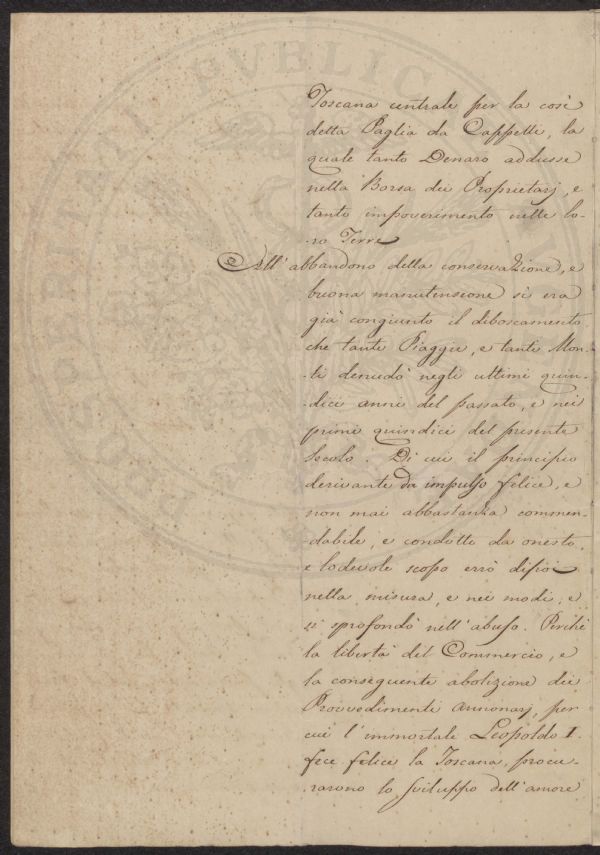 Toscana centrale per la così
detta Paglia da Cappelli, la
quale tanto Denaro addusse
nella Borsa dei Proprietarj, e
tanto impoverimento nelle lo-
-ro Terre
All' abbandono della conservazione, e
buona manutensione si era
già congiunto il diboscamento
che tante Piaggie, e tanti Mon-
-ti denudò negli ultimi quin-
-dici anni del passato, e nei
primi quindici del presente
Secolo. Di cui il principio
derivante da impulso felice, e
non mai abbastanza commen-
-dabile, e condotte da onesto,
e lodevole scopo errò dipoi
nella misura, e nei modi, e
si sprofondò nell' abuso. Perchè
la libertà del Commercio, e
la conseguente abolizione dei
Provvedimenti annonarj, per
cui l' immortale Leopoldo I.
fece felice la Toscana, procu-
-rarono lo sviluppo dell' amore